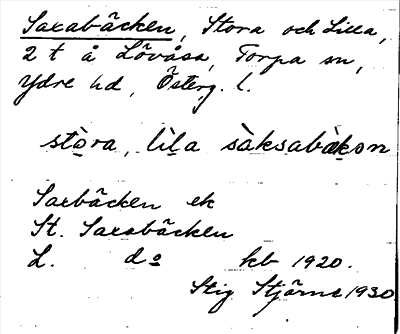 Saxabäcken, Stora och Lilla,
2 t å Lövåsa, Torpa sn,
Ydre hd, Österg. l.
stòra, lìla sàksabàkon
Saxbäcken ek
St. Saxabäcken
L. do kb 1920.
Stig Stjärne 1930